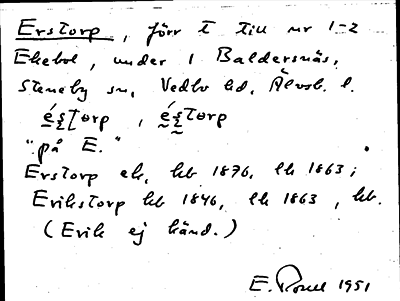 Erstorp, förr t till nr 1-2
Ekebol, under 1 Baldersnäs,
Steneby sn, Vedbo hd, Älvsb. l.
"på E."
Erstorp ek, kb 1876, lk 1863;
Erikstorp kb 1846, lk 1863, kb.
(Erik ej känd.)
1951